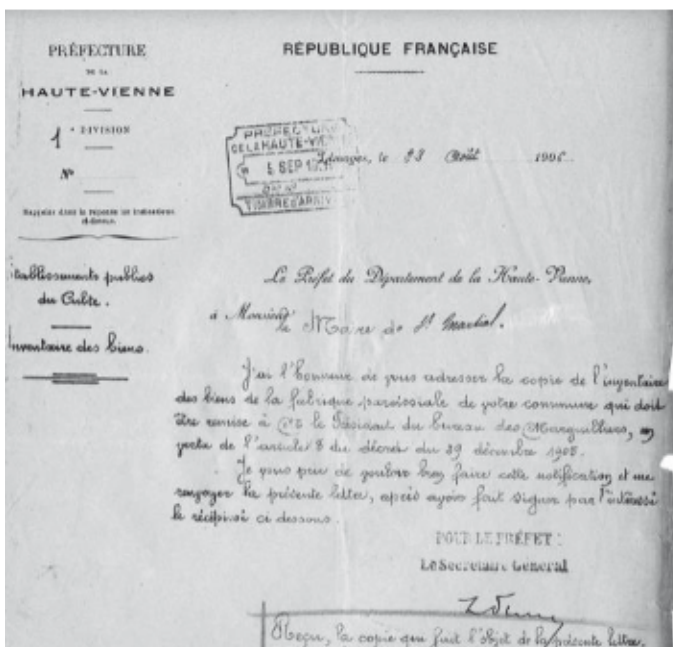 PRÉFECTURE
DE LA
HAUTE-VIENNE
1e DIVISION
N°
Rappeler dans la réponse les indications
ci-dessus.
Établissements publics
du Culte.
Inventaire des biens.
RÉPUBLIQUE FRANÇAISE
PRÉFECTURE
DE LA HAUTE-VIENNE
5 SEP
TIMBRE D'ARRIVÉE
Limoges, le 23 Août 1906
Le Préfet du Département de la Haute-Vienne,
à Monsieur
le Maire de St Martial.
J'ai l'honneur de vous adresser la copie de l'inventaire
des biens de la fabrique paroissiale de votre commune qui doit
être remise à Mr le Président du bureau des Marguilliers, en
vertu de l'article 8 du décret du 29 décembre 1905.
Je vous prie de vouloir bien faire cette notification et me
renvoyer la présente lettre, après avoir fait signer par l'intéressé
le récépissé ci dessous.
POUR LE PRÉFET :
Le Secrétaire Général
Reçu, la copie qui fait l'objet de la présente lettre.